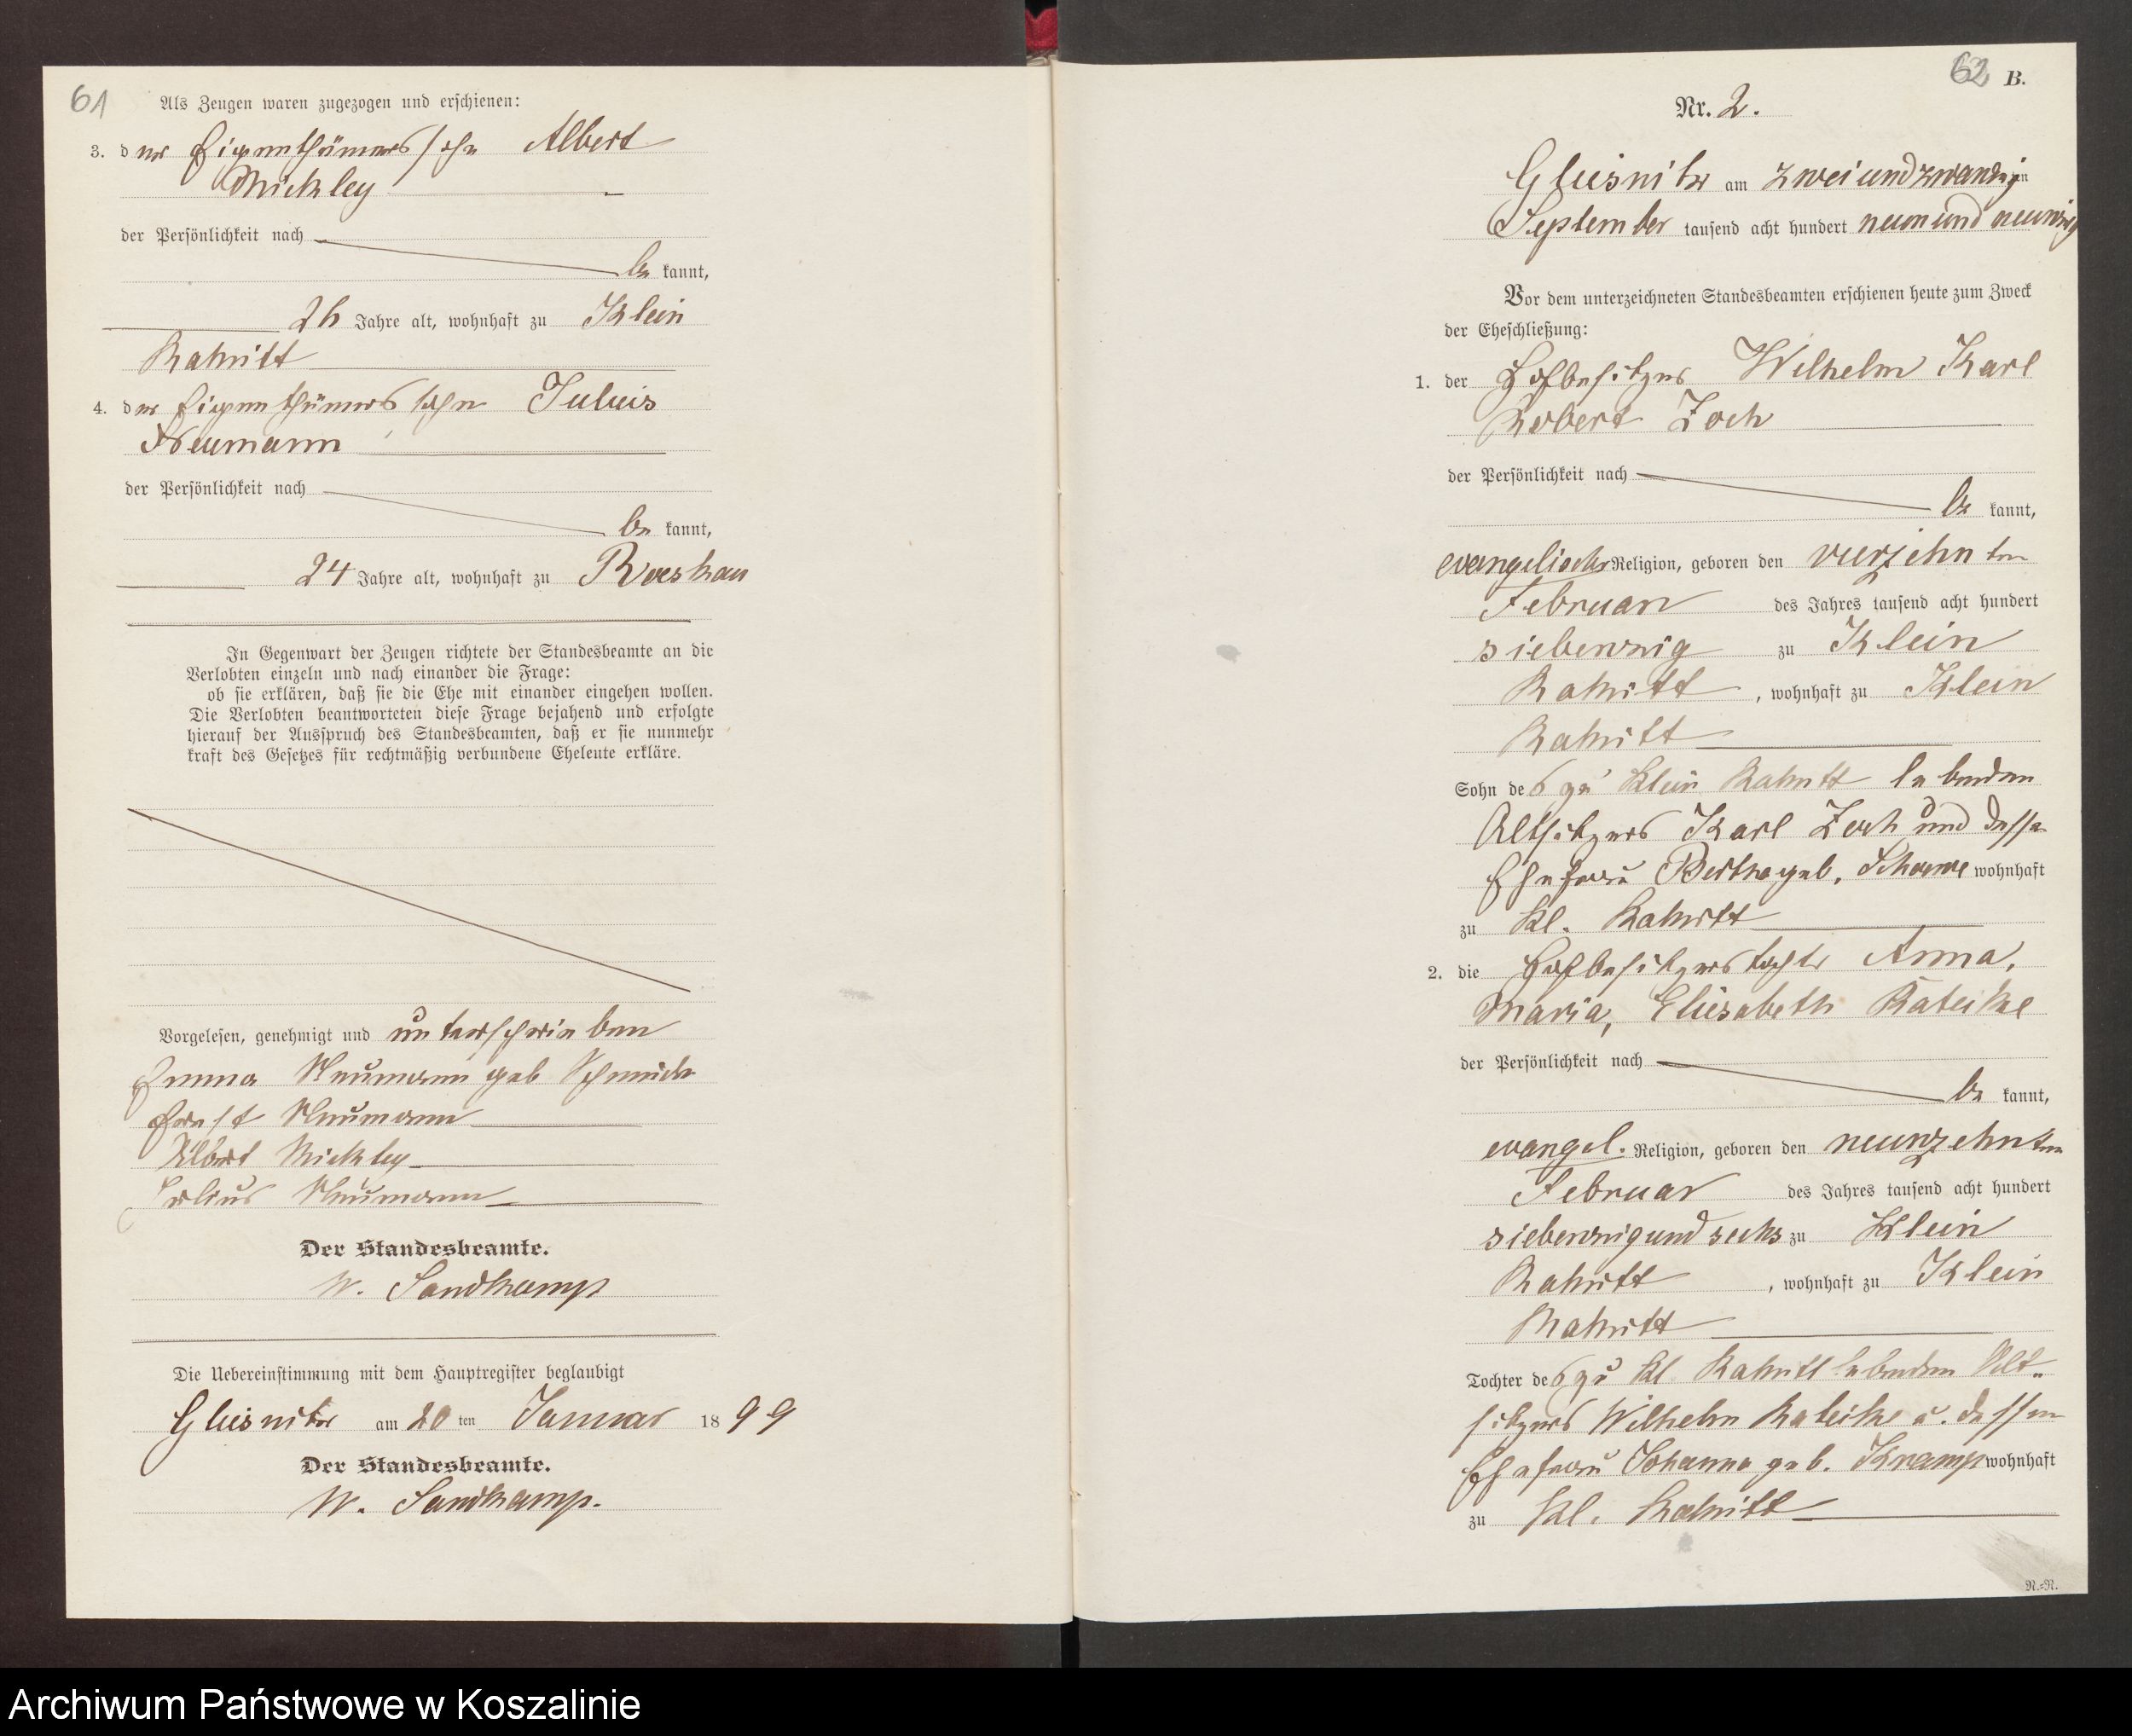 61
Als Zeugen waren zugezogen und erschienen:
3. der Eigenthümerssohn Albert
Mickley
der Persönlichkeit nach
be kannt,
26 Jahre alt, wohnhaft zu Klein
Rakitt
4. der Eigenthümerssohn Julius
Neumann
der Persönlichkeit nach
be kannt,
24 Jahre alt, wohnhaft zu Roeskau
In Gegenwart der Zeugen richtete der Standesbeamte an die
Verlobten einzeln und nach einander die Frage:
ob sie erklären, daß sie die Ehe mit einander eingehen wollen.
Die Verlobten beantworteten diese Frage bejahend und erfolgte
hierauf der Ausspruch des Standesbeamten, daß er sie nunmehr
kraft des Gesetzes für rechtmäßig verbundene Eheleute erkläre.
Vorgelesen, genehmigt und unterschrieben
Emma Neumann geb
Ernst Neumann
Albert Mickley
Julius Neumann
Der Standesbeamte.
W. Sandkamp
Die Uebereinstimmung mit dem Hauptregister beglaubigt
Gliesnitz am 20 ten Januar 18 99
Der Standesbeamte.
W. Sandkamp.
62 B.
Nr. 2.
Gliesnitz am zweiundzwanzig ten
September tausend acht hundert neunundneunzig
Vor dem unterzeichneten Standesbeamten erschienen heute zum Zweck
der Eheschließung:
1. der Hofbesitzer Wilhelm Karl
Robert Zoch
der Persönlichkeit nach
be kannt,
evangelischer Religion, geboren den vierzehnten
Februar des Jahres tausend acht hundert
siebenzig zu Klein
Rakitt , wohnhaft zu Klein
Rakitt
Sohn des zu Klein Rakitt lebenden
Altsitzers Karl Zoch und dessen
Ehefrau Bertha geb. wohnhaft
zu Kl. Rakitt
2. die Hofbesitzerstochter Anna,
Maria, Eliesabeth Rateike
der Persönlichkeit nach
be kannt,
evangel. Religion, geboren den neunzehnten
Februar des Jahres tausend acht hundert
siebenzigundsechs zu Klein
Rakitt , wohnhaft zu Klein
Rakitt
Tochter des zu Kl. Rakitt lebenden Alt-
sitzers Wilhelm Rateike u. dessen
Ehefrau Johanna geb. Kramp wohnhaft
zu Kl. Rakitt
N.=N.
Archiwum Państwowe w Koszalinie